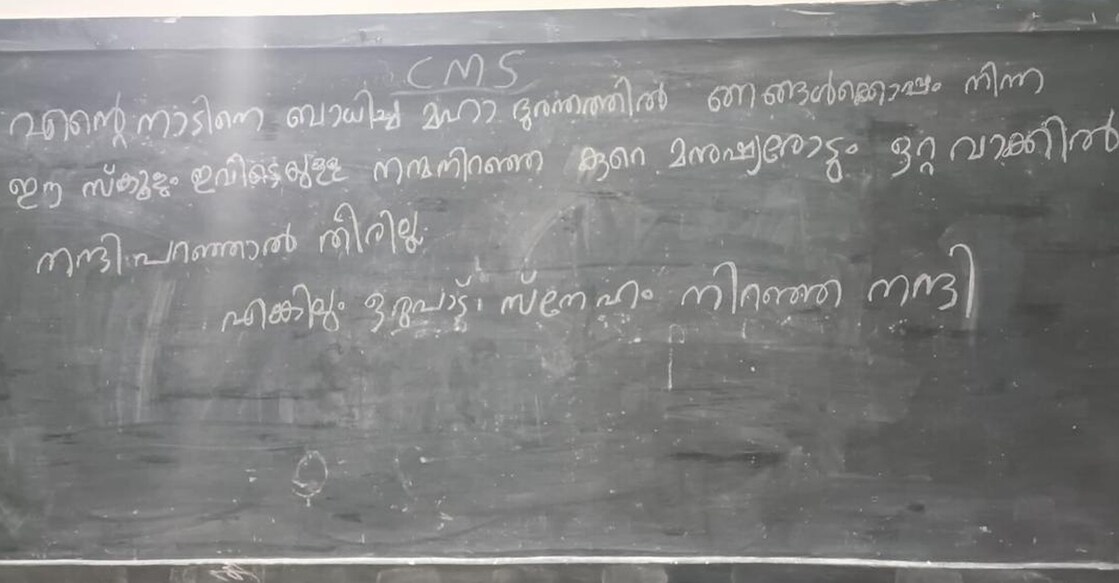 CMS
എന്റെ നാടിനെ ബാധിച്ച മഹാ ദുരന്തത്തിൽ ഞങ്ങൾക്കൊപ്പം നിന്ന
ഈ സ്കൂളും ഇവിടെയുള്ള നന്മനിറഞ്ഞ കുറെ മനുഷ്യരോടും ഒറ്റ വാക്കിൽ
നന്ദി പറഞ്ഞാൽ തീരില്ല.
എങ്കിലും ഒരുപാട് സ്നേഹം നിറഞ്ഞ നന്ദി